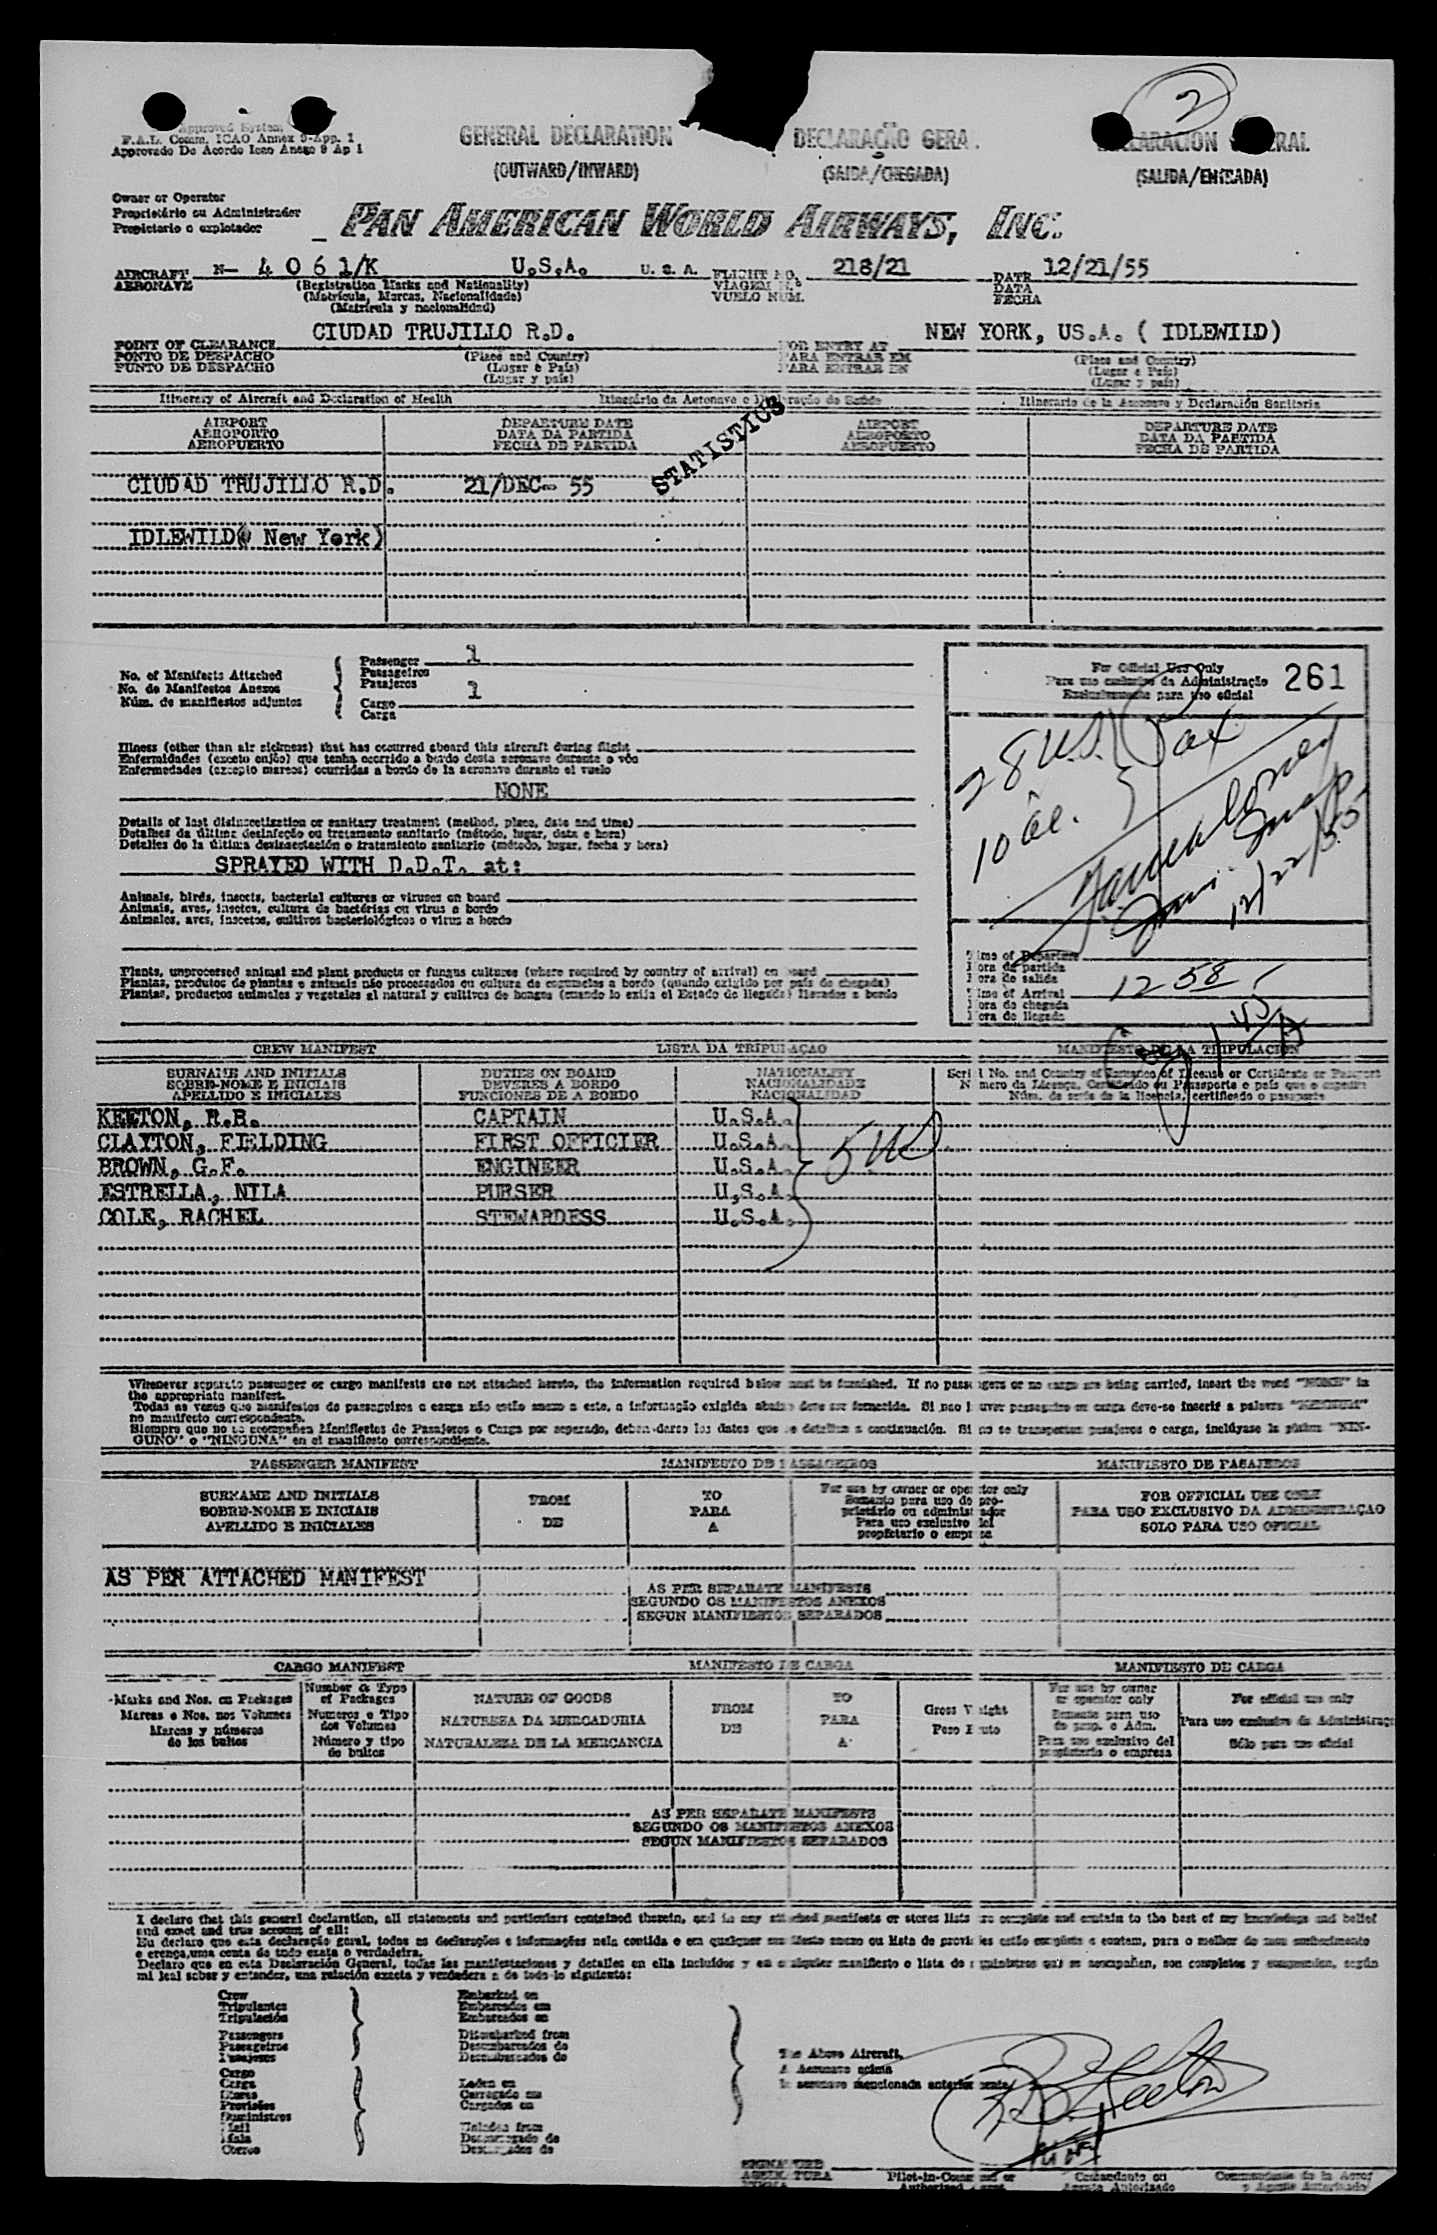 2
Approved System
F.A.L. Comm. ICAO Annex 9-App. 1
Approvado De Acordo Icao Anexo 9 Ap 1
GENERAL DECLARATION
(OUTWARD/INWARD)
DECLARAÇÃO GERA
(SAIDA/CHEGADA)
(SALIDA/ENTRADA)
Owner or Operator
Proprietário ou Administrador
Propietario o explotador
PAN AMERICAN WORLD AIRWAYS, INC.
AIRCRAFT N- 4 0 6 1/K U.S.A. U. S. A. FLIGHT NO. 218/21 DATE 12/21/55
AERONAVE (Registration Marks and Nationality) VIAGEM N.º DATA
(Matricula, Marcas, Nacionalidade) VUELO NUM. FECHA
(Matrícula y nacionalidad)
CIUDAD TRUJILLO R.D. NEW YORK, US.A. ( IDLEWILD)
POINT OF CLEARANCE (Place and Country) FOR ENTRY AT (Place and Country)
PONTO DE DESPACHO (Lugar e País) PARA ENTRAR EM (Lugar e País)
PUNTO DE DESPACHO (Lugar y país) PARA ENTRAR EN (Lugar y país)
Itinerary of Aircraft and Declaration of Health Itinerário da Aeronave e Declaração de Saúde Itinerario de la Aeronave y Declaración Sanitaria
AIRPORT DEPARTURE DATE AIRPORT DEPARTURE DATE
AEROPORTO DATA DA PARTIDA AEROPORTO DATA DA PARTIDA
AEROPUERTO FECHA DE PARTIDA AEROPUERTO FECHA DE PARTIDA
STATISTICS
CIUDAD TRUJILLO R.D. 21/DEC- 55
IDLEWILD( New York)
No. of Manifests Attached
No. de Manifestos Anexos
Núm. de manifiestos adjuntos
Passenger 1
Passageiros
Pasajeros
Cargo 1
Carga
For Official Use Only
Para uso exclusivo da Administração
Exclusivamente para uso oficial
261
28 U.S. } Pax
10 al.
12/22/55
Illness (other than air sickness) that has occurred aboard this aircraft during flight
Enfermidades (exceto enjôo) que tenha ocorrido a bordo desta aeronave durante o vôo
Enfermedades (excepto mareos) ocurridas a bordo de la aeronave durante el vuelo
NONE
Details of last disinsectization or sanitary treatment (method, place, date and time)
Detalhes da última desinfeção ou tratamento sanitario (método, lugar, data e hora)
Detalles de la última desinsectación o tratamiento sanitario (método, lugar, fecha y hora)
SPRAYED WITH D.D.T. at:
Animals, birds, insects, bacterial cultures or viruses on board
Animais, aves, insetos, cultura de bactérias ou virus a bordo
Animales, aves, insectos, cultivos bacteriológicos o virus a bordo
Plants, unprocessed animal and plant products or fungus cultures (where required by country of arrival) on board
Plantas, produtos de plantas e animais não processados ou cultura de cogumelos a bordo (quando exigido por país de chegada)
Plantas, productos animales y vegetales al natural y cultivos de hongos (cuando lo exija el Estado de llegada) llevados a bordo
Time of Departure
Hora de partida
Hora de salida
Time of Arrival
Hora da chegada
Hora de llegada
12 58
CREW MANIFEST LISTA DA TRIPULAÇAO MANIFIESTO DE LA TRIPULACION
SURNAME AND INITIALS DUTIES ON BOARD NATIONALITY Serial No. and Country of Issuance of License or Certificate or Passport
SOBRE-NOME E INICIAIS DEVERES A BORDO NACIONALIDADE Número da Licença, Certificado ou Passaporte e país que o expedira
APELLIDO E INICIALES FUNCIONES DE A BORDO NACIONALIDAD Núm. de serie de la licencia, certificado o pasaporte
KEETON, R.B. CAPTAIN U.S.A.
CLAYTON, FIELDING FIRST OFFICIER U.S.A.
BROWN, G.F. ENGINEER U.S.A.
ESTRELLA, NILA PURSER U,S.A
COLE, RACHEL STEWARDESS U.S.A.
5 US
Whenever separate passenger or cargo manifests are not attached hereto, the information required below must be furnished. If no passengers or no cargo are being carried, insert the word "NONE" in
the appropriate manifest.
Todas as vezes que manifestos de passageiros e carga não estão anexo a este, a informação exigida abaixo deve ser fornecida. Si nao houver passageiro ou carga deve-se inserir a palavra "NENHUM"
no manifesto correspondente.
Siempre que no se acompañen Manifiestos de Pasajeros o Carga por separado, deben darse los datos que se detallan a continuación. Si no se transportan pasajeros o carga, inclúyase la palabra "NIN-
GUNO" o "NINGUNA" en el manifiesto correspondiente.
PASSENGER MANIFEST MANIFESTO DE PASSAGEIROS MANIFIESTO DE PASAJEROS
SURNAME AND INITIALS FROM TO For use by owner or operator only FOR OFFICIAL USE ONLY
SOBRE-NOME E INICIAIS DE PARA Somente para uso do pro-prietário ou administrador PARA USO EXCLUSIVO DA ADMINISTRAÇAO
APELLIDO E INICIALES A Para uso exclusivo del propietario o empresa SOLO PARA USO OFICIAL
AS PER ATTACHED MANIFEST
AS PER SEPARATE MANIFESTS
SEGUNDO OS MANIFESTOS ANEXOS
SEGUN MANIFIESTOS SEPARADOS
CARGO MANIFEST MANIFESTO DE CARGA MANIFIESTO DE CARGA
Marks and Nos. on Packages
Marcas e Nos. nos Volumes
Marcas y números
de los bultos
Number & Type
of Packages
Numeros e Tipo
dos Volumes
Número y tipo
de bultos
NATURE OF GOODS
NATUREZA DA MERCADORIA
NATURALEZA DE LA MERCANCIA
FROM
DE
TO
PARA
A
Gross Weight
Peso Bruto
For use by owner
or operator only
Somente para uso
do prop. e Adm.
Para uso exclusivo del
propietario o empresa
For official use only
Para uso exclusivo da Administraç
Sólo para uso oficial
AS PER SEPARATE MANIFESTS
SEGUNDO OS MANIFESTOS ANEXOS
SEGUN MANIFIESTOS SEPARADOS
I declare that this general declaration, all statements and particulars contained therein, and in any attached manifests or stores lists are complete and contain to the best of my knowledge and belief
and exact and true account of all:
Eu declaro que esta declaração geral, todos as declarações e informações nela contida e em qualquer manifesto anexo ou lista de provisões estão completo e contem, para o melhor do meu conhecimento
e crença,uma conta de todo exata e verdadeira.
Declaro que en esta Declaración General, todas las manifestaciones y detalles en ella incluidos y en cualquier manifiesto o lista de suministros que se acompañen, son completos y comprenden, según
mi leal saber y entender, una relación exacta y verdadera de todo lo siguiente:
Crew
Tripulantes
Tripulación
Passengers
Passageiros
Pasajeros
Cargo
Carga
Stores
Provisões
Suministros
Mail
Mala
Correo
Embarked on
Embarcados em
Embarcados en
Disembarked from
Desembarcados de
Desembarcados de
Laden on
Carregado em
Cargados en
Unladen from
Descarregado de
Descargados de
The Above Aircraft,
A Aeronave acima
la aeronave mencionada anteriormente
R B Keeton
SIGNATURE
ASSINATURA
FIRMA
Pilot-in-Command or
Authorized Agent
Comandante ou
Agente Autorizado
Comandante de la Aeron
o Agente Autorizado